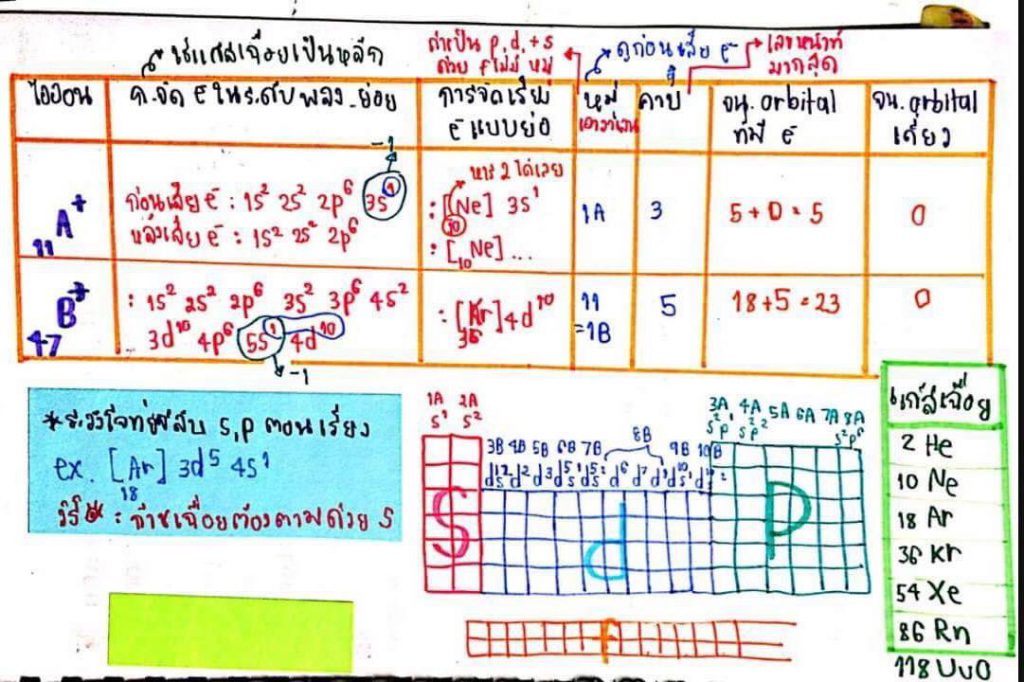 ใช้แก๊สเฉื่อยเป็นหลัก
ถ้าเป็น p, d, + s
ด้วย f ไม่มี หมู่
ดูก่อนเสีย e⁻
เลขหน้าที่
มากสุด
ไอออน
ก.จัด e ในระดับพลง.ย่อย
การจัดเรียง
e แบบย่อ
หมู่
คาบ
จน. orbital
ที่มี e
จน. orbital
เดี่ยว
-1
₁₁A⁺
ก่อนเสีย e⁻ : 1s² 2s² 2p⁶ 3s¹
หลังเสีย e⁻ : 1s² 2s² 2p⁶
หาร 2 ได้เลย
: [₁₀Ne] 3s¹
: [₁₀Ne] ...
1A
3
5 + 0 = 5
0
₄₇B⁺
: 1s² 2s² 2p⁶ 3s² 3p⁶ 4s²
3d¹⁰ 4p⁶ 5s¹ 4d¹⁰
-1
: [₃₆Kr] 4d¹⁰
11
=1B
5
18+5 = 23
0
*ระวังโจทย์สลับ s,p ตอนเรียง
ex. [₁₈Ar] 3d⁵ 4s¹
วิธี : ก๊าซเฉื่อยต้องตามด้วย s
1A 2A
s¹ s²
3B 4B 5B 6B 7B 8B 9B 10B
3A 4A 5A 6A 7A 8A
s²p¹ s²p² s²p⁶
S
d
p
f
แก๊สเฉื่อย
2 He
10 Ne
18 Ar
36 Kr
54 Xe
86 Rn
118 UuO